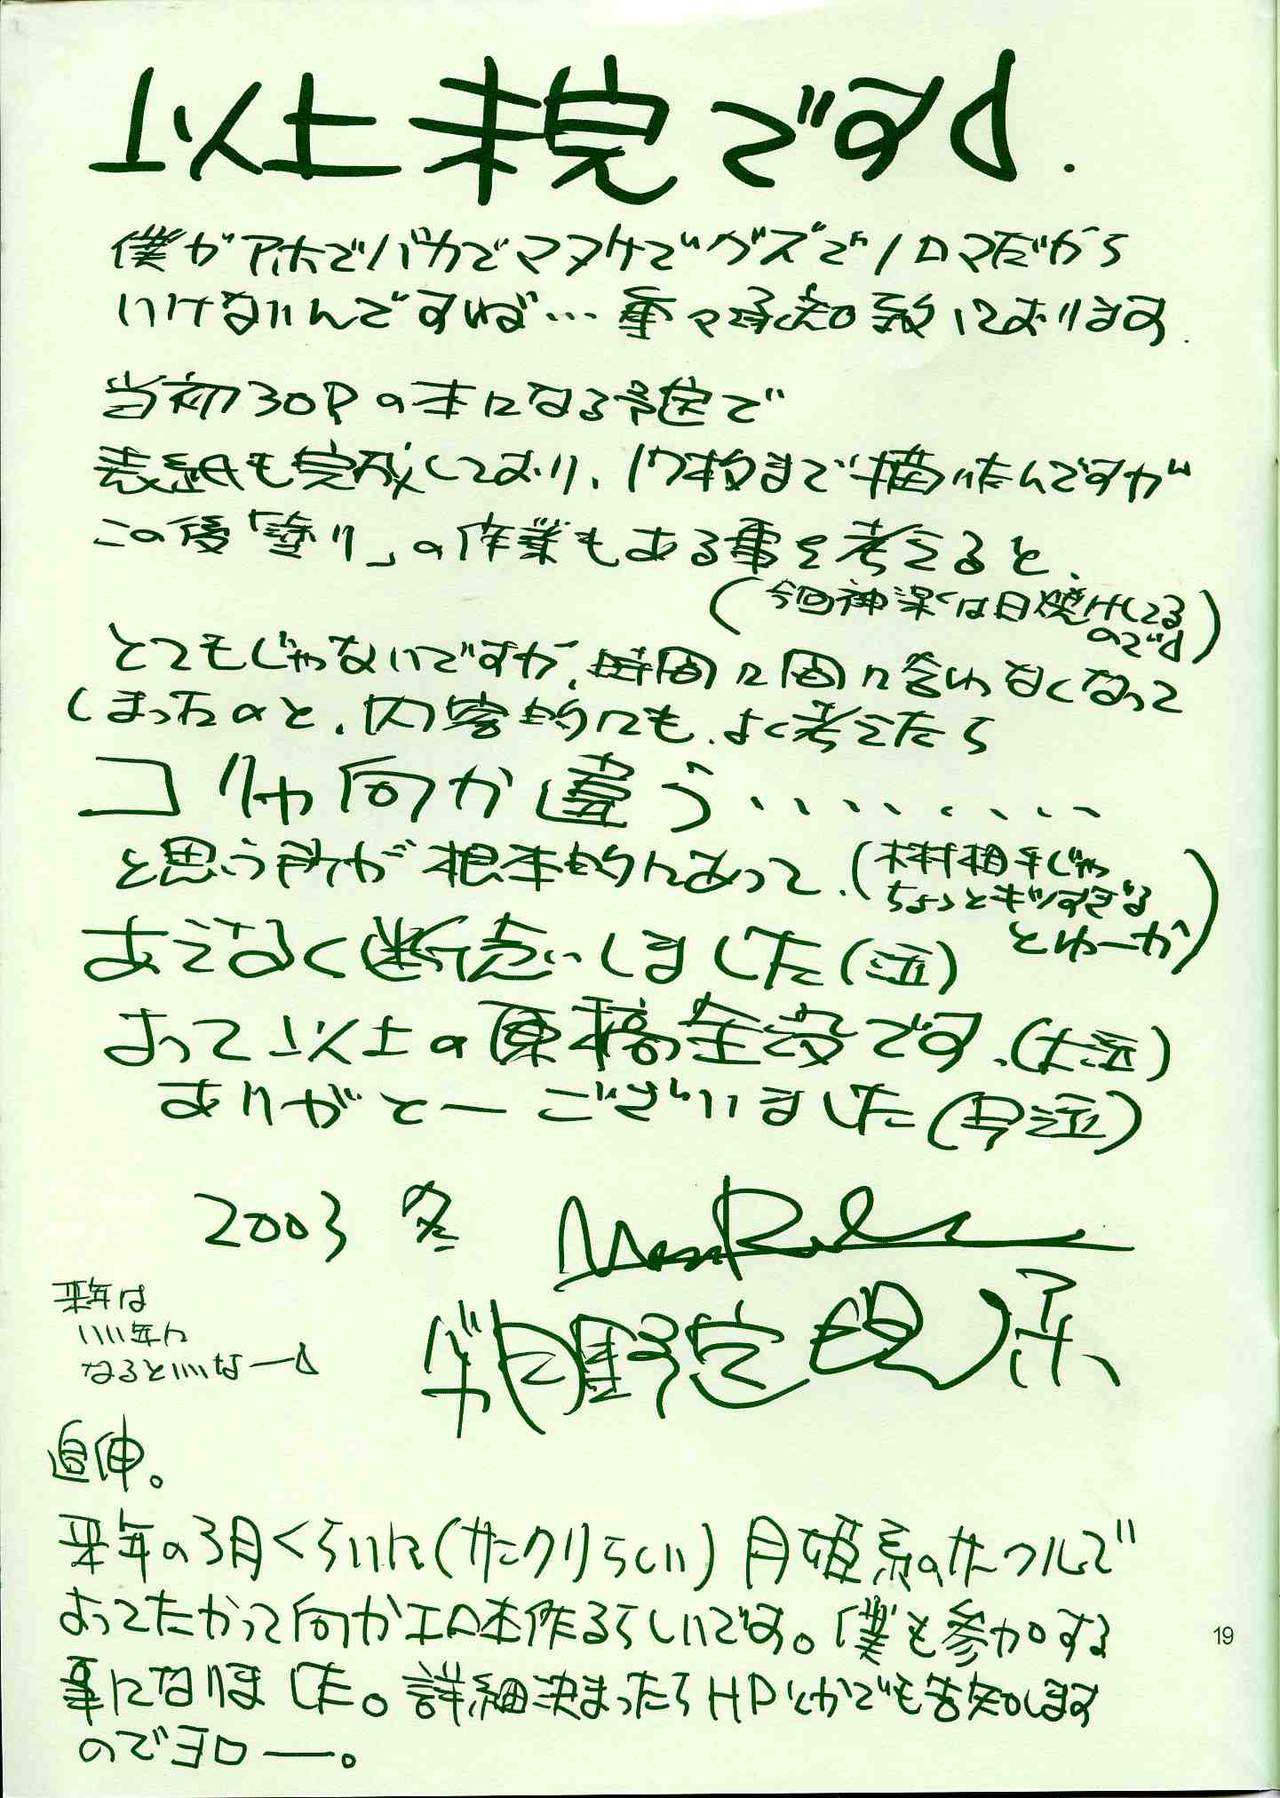 以上未完ですd.
僕がアホでバカでマヌケでグズでノロマだから
いけないんですねば…重々承知致しております.
当初30Pの本になる予定で
表紙も完成しており、17枚まで描いたんですが
この後「塗り」の作業もある事を考えると、
(今回神楽は日焼けしてる
のでd)
とてもじゃないですが、時間に間に合わなくなって
しまったのと、内容的にも、よく考えたら
コリャ何か違う.........
と思う所が根本的にあって、(木村相手じゃ
ちょっとキツすぎる
とゆーか)
あえなく断念しました(泣)
よって以上の原稿全没です、(大泣)
ありがとーございました(号泣)
2003 冬
来年は
いい年に
なるといいなーd
追伸。
来年の3月くらいに(サンクリらしい)月姫系のサークルで
よってたかって何かエロ本作るらしいです。僕も参加する
事になりました。詳細決まったらHPとかでも告知します
のでヨロー。
19